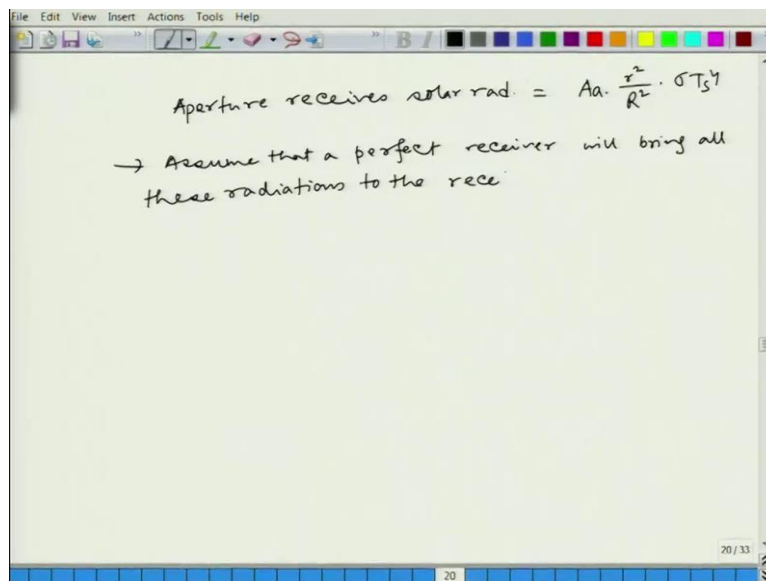 File Edit View Insert Actions Tools Help
Aperture receives solar rad. = Aa. r²/R² . σTs⁴
→ Assume that a perfect receiver will bring all
these radiations to the rece
20 / 33
20